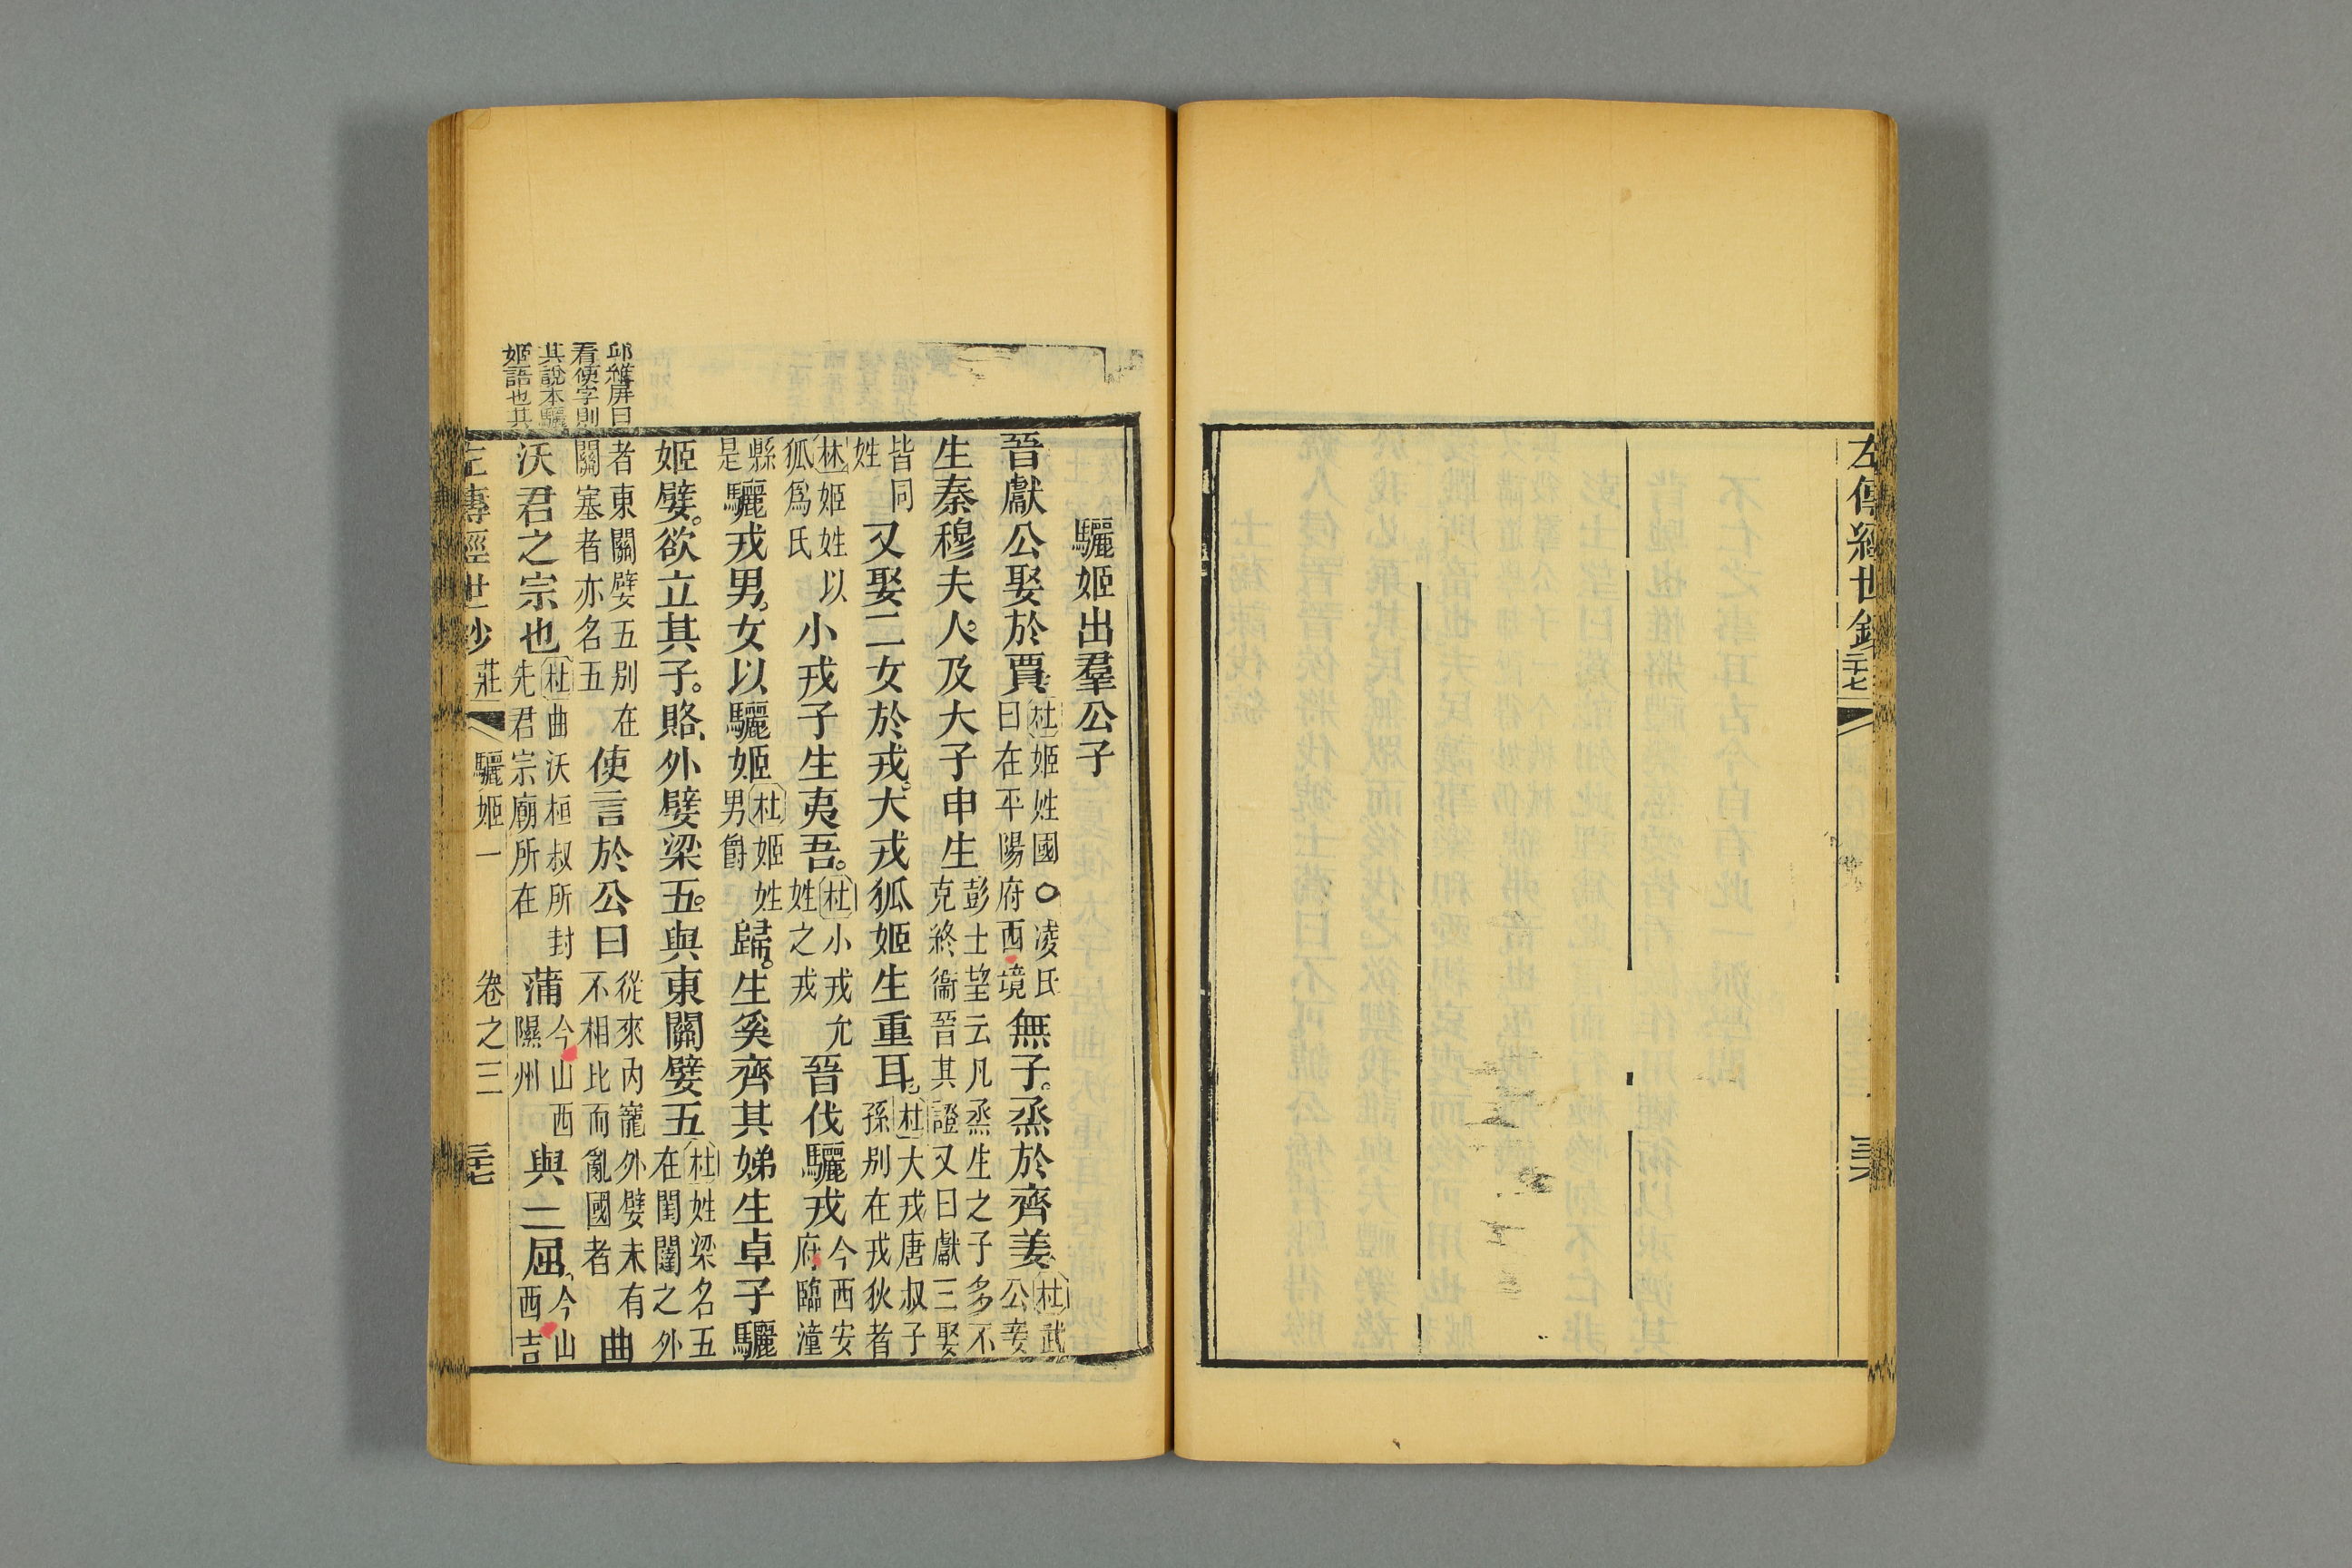 左傳經世鈔
驪姬出羣公子
晉獻公娶於賈杜姬姓國○凌氏曰在平陽府西境無子烝於齊姜杜武公妾
生秦穆夫人及大子申生彭士望云凡烝生之子多不克終衞晉其證又曰獻三娶
皆同姓又娶二女於戎大戎狐姬生重耳杜大戎唐叔子孫別在戎狄者
林姬姓以狐爲氏小戎子生夷吾杜小戎允姓之戎晉伐驪戎今西安府臨潼
縣是驪戎男女以驪姬杜姬姓男爵歸生奚齊其娣生卓子驪
姬嬖欲立其子賂外嬖梁五與東關嬖五杜姓梁名五在閨闥之外
者東關嬖五別在關塞者亦名五使言於公曰從來內寵外嬖未有不相比而亂國者曲
沃君之宗也杜曲沃桓叔所封先君宗廟所在蒲今山西隰州與二屈今山西吉
邱維屏曰
看使字則
其說本驪
姬語也其
左傳經世鈔 莊 驪姬一 卷之三